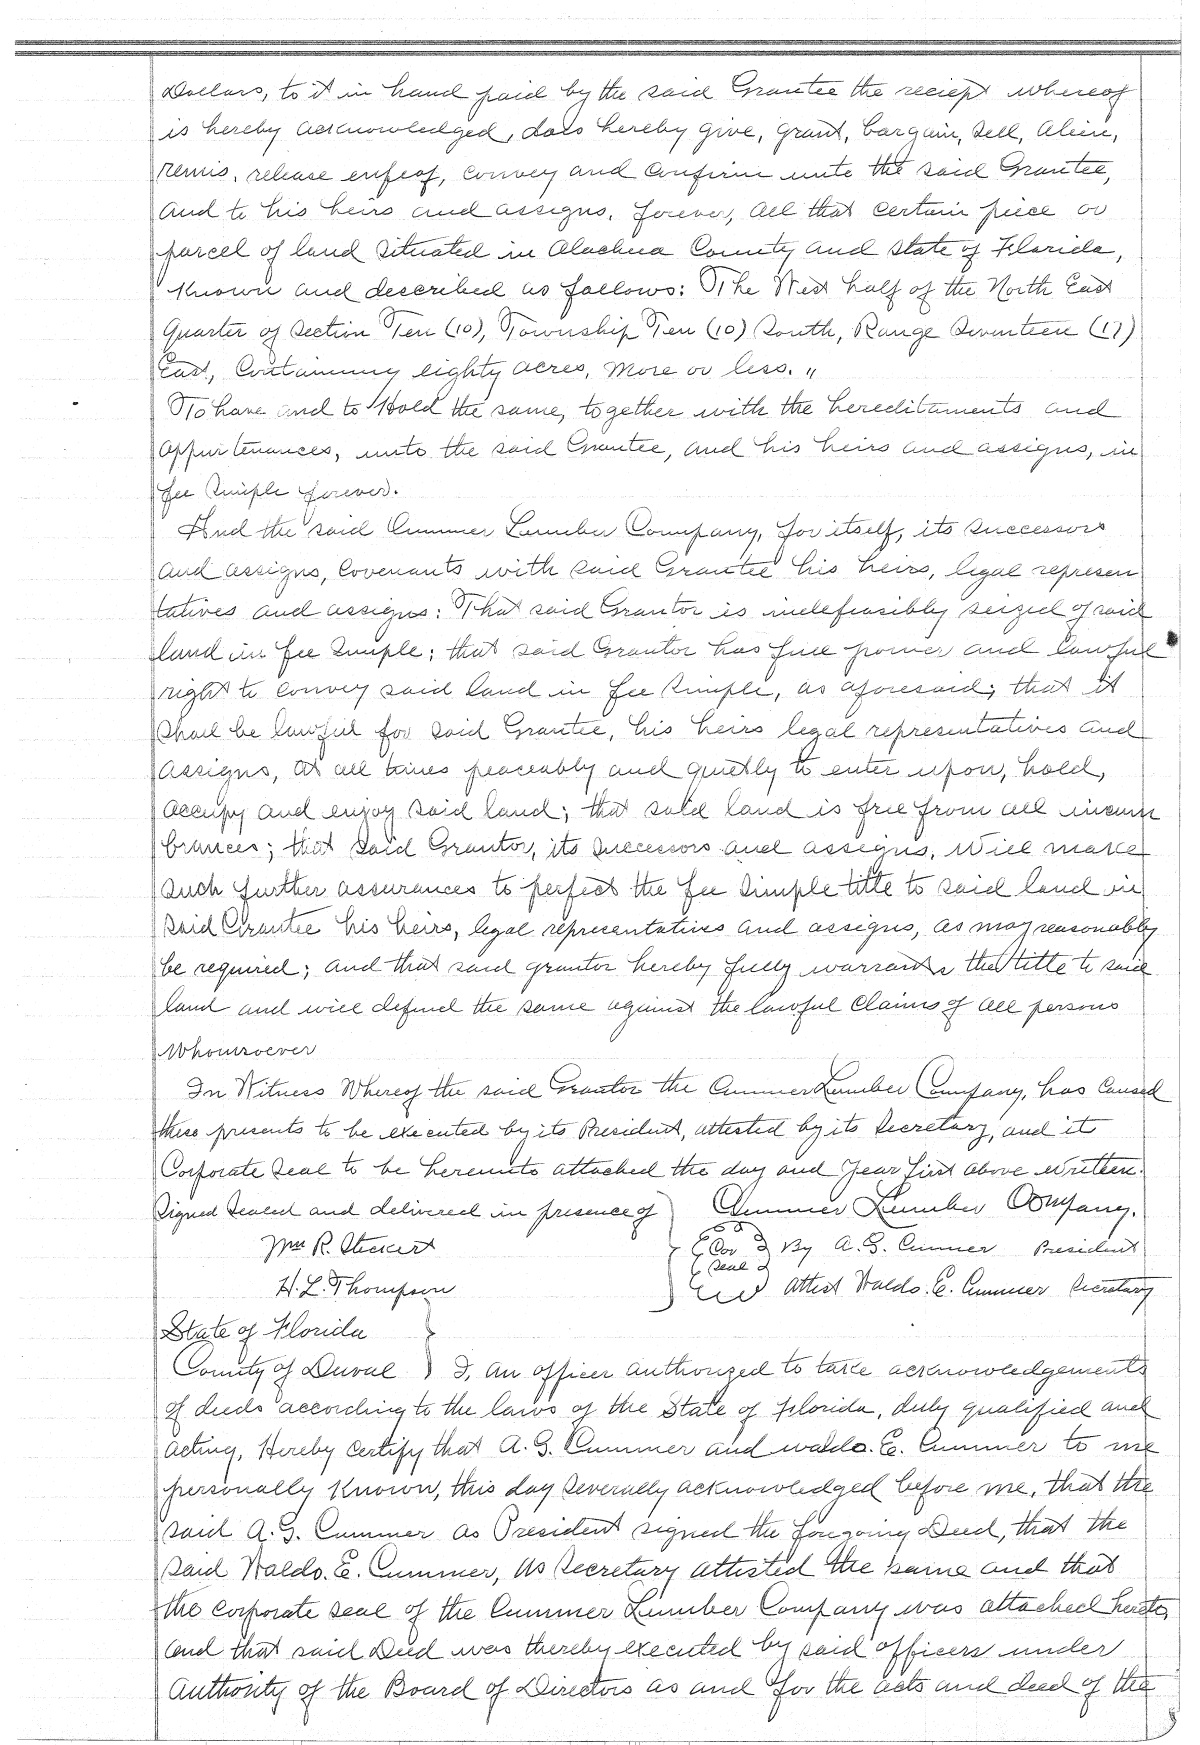 Dollars, to it in hand paid by the said Grantee the reciept whereof
is hereby acknowledged, does hereby give, grant, bargain, sell, alien,
remis, release enfeof, convey and confirm unto the said Grantee,
and to his heirs and assigns, forever, all that certain piece or
parcel of land situated in Alachua County and State of Florida,
known and described as follows: The West half of the North East
Quarter of Section Ten (10), Township Ten (10) South, Range Seventeen (17)
East, Containing eighty acres, more or less. "
To have and to Hold the same, together with the hereditaments and
appurtenances, unto the said Grantee, and his heirs and assigns, in
fee simple forever.
And the said Cummer Lumber Company, for itself, its successors
and assigns, covenants with said Grantee his heirs, legal represen
tatives and assigns: That said Grantor is indefeasibly seized of said
land in fee simple; that said Grantor has full power and lawful
right to convey said land in fee simple, as aforesaid; that it
shall be lawful for said Grantee, his heirs legal representatives and
assigns, at all times peaceably and quietly to enter upon, hold,
occupy and enjoy said land; that said land is free from all incum
brances; that said Grantor, its successors and assigns, will make
such further assurances to perfect the fee simple title to said land in
said Grantee his heirs, legal representatives and assigns, as may reasonably
be required; and that said grantor hereby fully warrants the title to said
land and will defend the same against the lawful claims of all persons
whomsoever
In Witness Whereof the said Grantor the Cummer Lumber Company, has caused
these presents to be executed by its President, attested by its Secretary, and its
Corporate Seal to be hereunto attached the day and year first above written.
Signed Sealed and delivered in presence of } Cummer Lumber Company.
Wm R. Steckert Cor By A. G. Cummer President
Seal
H. L. Thompson Attest Waldo. E. Cummer Secretary
State of Florida }
County of Duval } I, an officer authorized to take acknowledgements
of deeds according to the laws of the State of Florida, duly qualified and
acting, Hereby certify that A. G. Cummer and Waldo. E. Cummer to me
personally known, this day severally acknowledged before me, that the
said A. G. Cummer as President signed the foregoing Deed, that the
said Waldo. E. Cummer, as Secretary attested the same and that
the corporate seal of the Cummer Lumber Company was attached hereto,
and that said Deed was thereby executed by said officers under
authority of the Board of Directors as and for the acts and deed of the